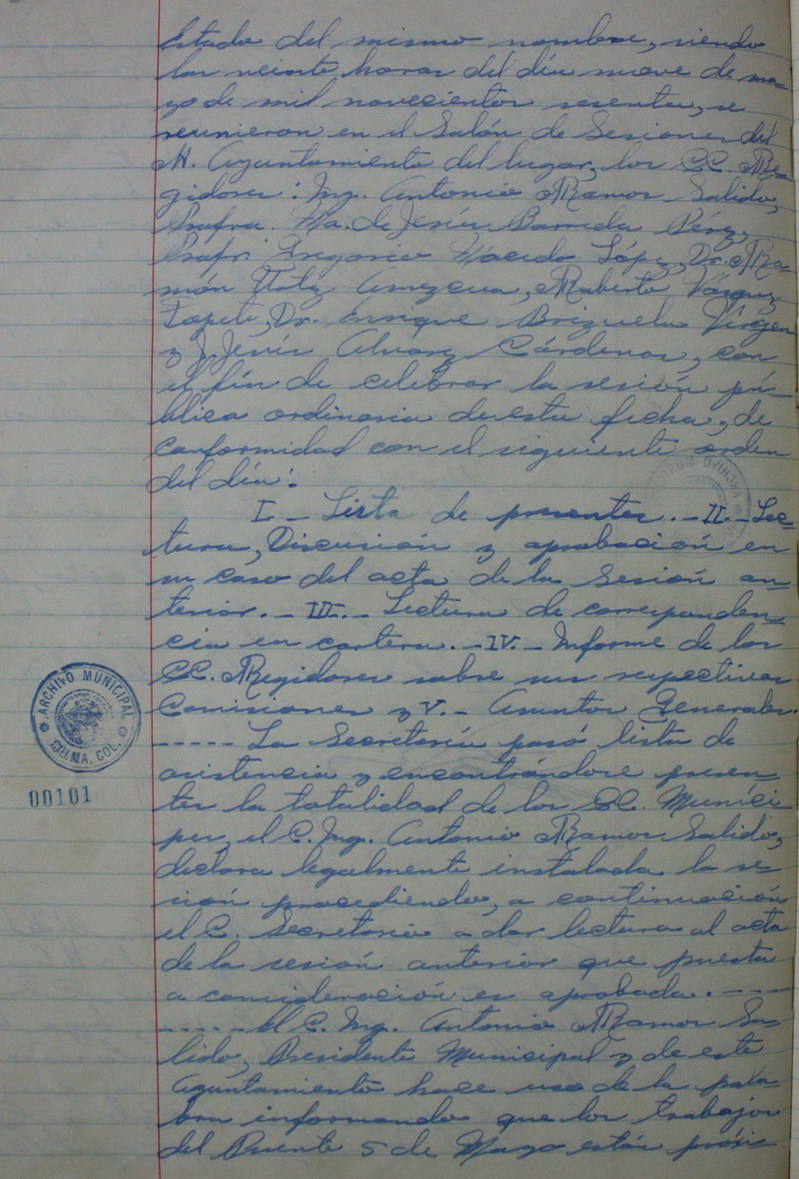 Estado del mismo nombre, siendo
las veinte horas del día nueve de ma-
yo de mil novecientos sesenta, se
reunieron en el Salón de Sesiones del
H. Ayuntamiento del lugar, los CC. Re-
gidores: Ing. Antonio Ramos Salido,
Profra. Ma. de Jesús Barreda Pérez,
Profr. Gregorio Macedo López, Dr. Ra-
món Amezcua, Roberto Vázquez
Topete, Dr. Enrique Brizuela Virgen
y J. Jesús Alvarez Cárdenas, con
el fín de celebrar la sesión pú-
blica ordinaria de esta fecha, de
conformidad con el siguiente orden
del día:
I.- Lista de presentes.- II.- Lec-
tura, Discusión y aprobación en
su caso del acta de la Sesión an-
terior.- III.- Lectura de corresponden-
cia en cartera.- IV.- Informe de los
CC. Regidores sobre sus respectivas
Comisiones y V.- Asuntos Generales.
----- La Secretaría pasó lista de
asistencia y encontrándose presen-
tes la totalidad de los CC. Muníci-
pes, el C. Ing. Antonio Ramos Salido,
declara legalmente instalada la se-
sión procediendo, a continuación
el C. Secretario a dar lectura al acta
de la sesión anterior que puesta
a consideración es aprobada. ----
----- El C. Ing. Antonio Ramos Sa-
lido, Presidente Municipal y de este
Ayuntamiento hace uso de la pala-
bra informando que los trabajos
del Puente 5 de Mayo están próxi-
ARCHIVO MUNICIPAL
COLIMA, COL.
00101